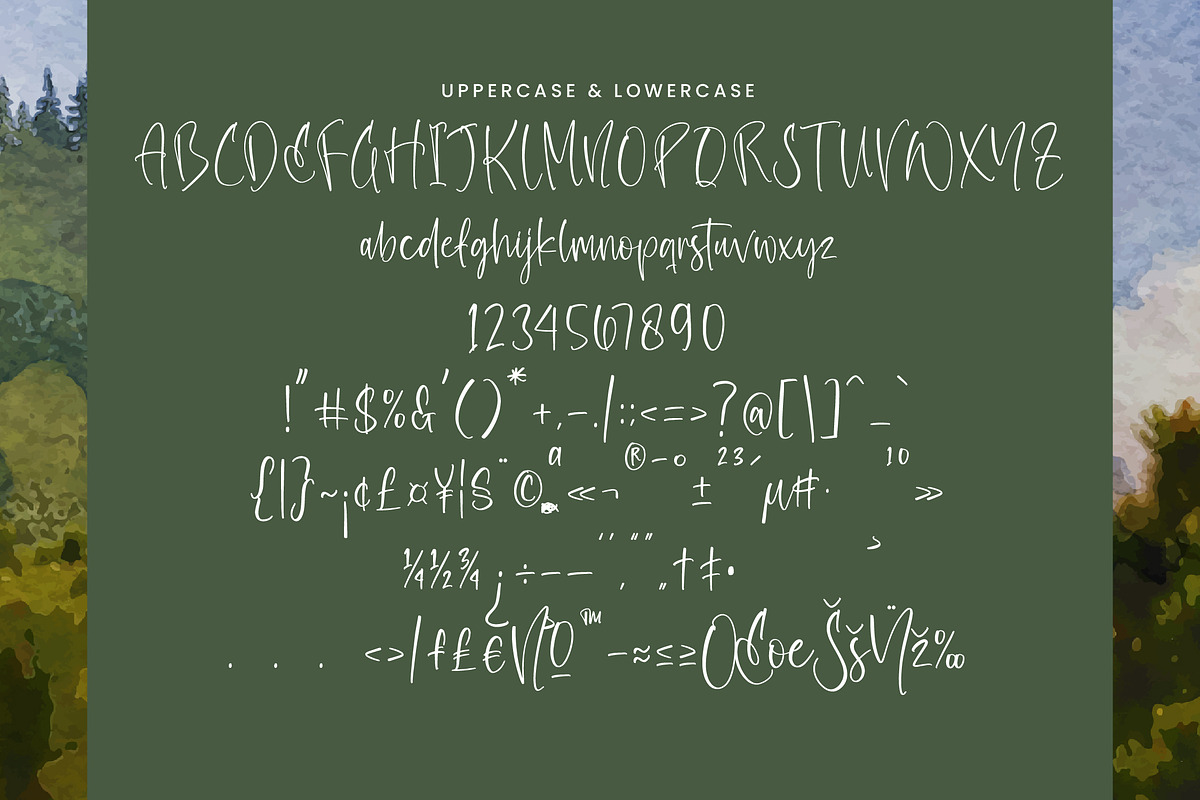 UPPERCASE & LOWERCASE
ABCDEFGHIJKLMNOPQRSTUVWXYZ
abcdefghijklmnopqrstuvwxyz
1234567890
!"#$%&'()*+,-./:;<=>?@[\]^_`
{|}~¡¢£¤¥¦§¨©ª«¬®¯°±²³´µ#·¹º»
¼½¾¿÷–—‘’‚“”„†‡•›
. . . <>/₣₤€№™−≈≤≥ŒœŠšŸž‰